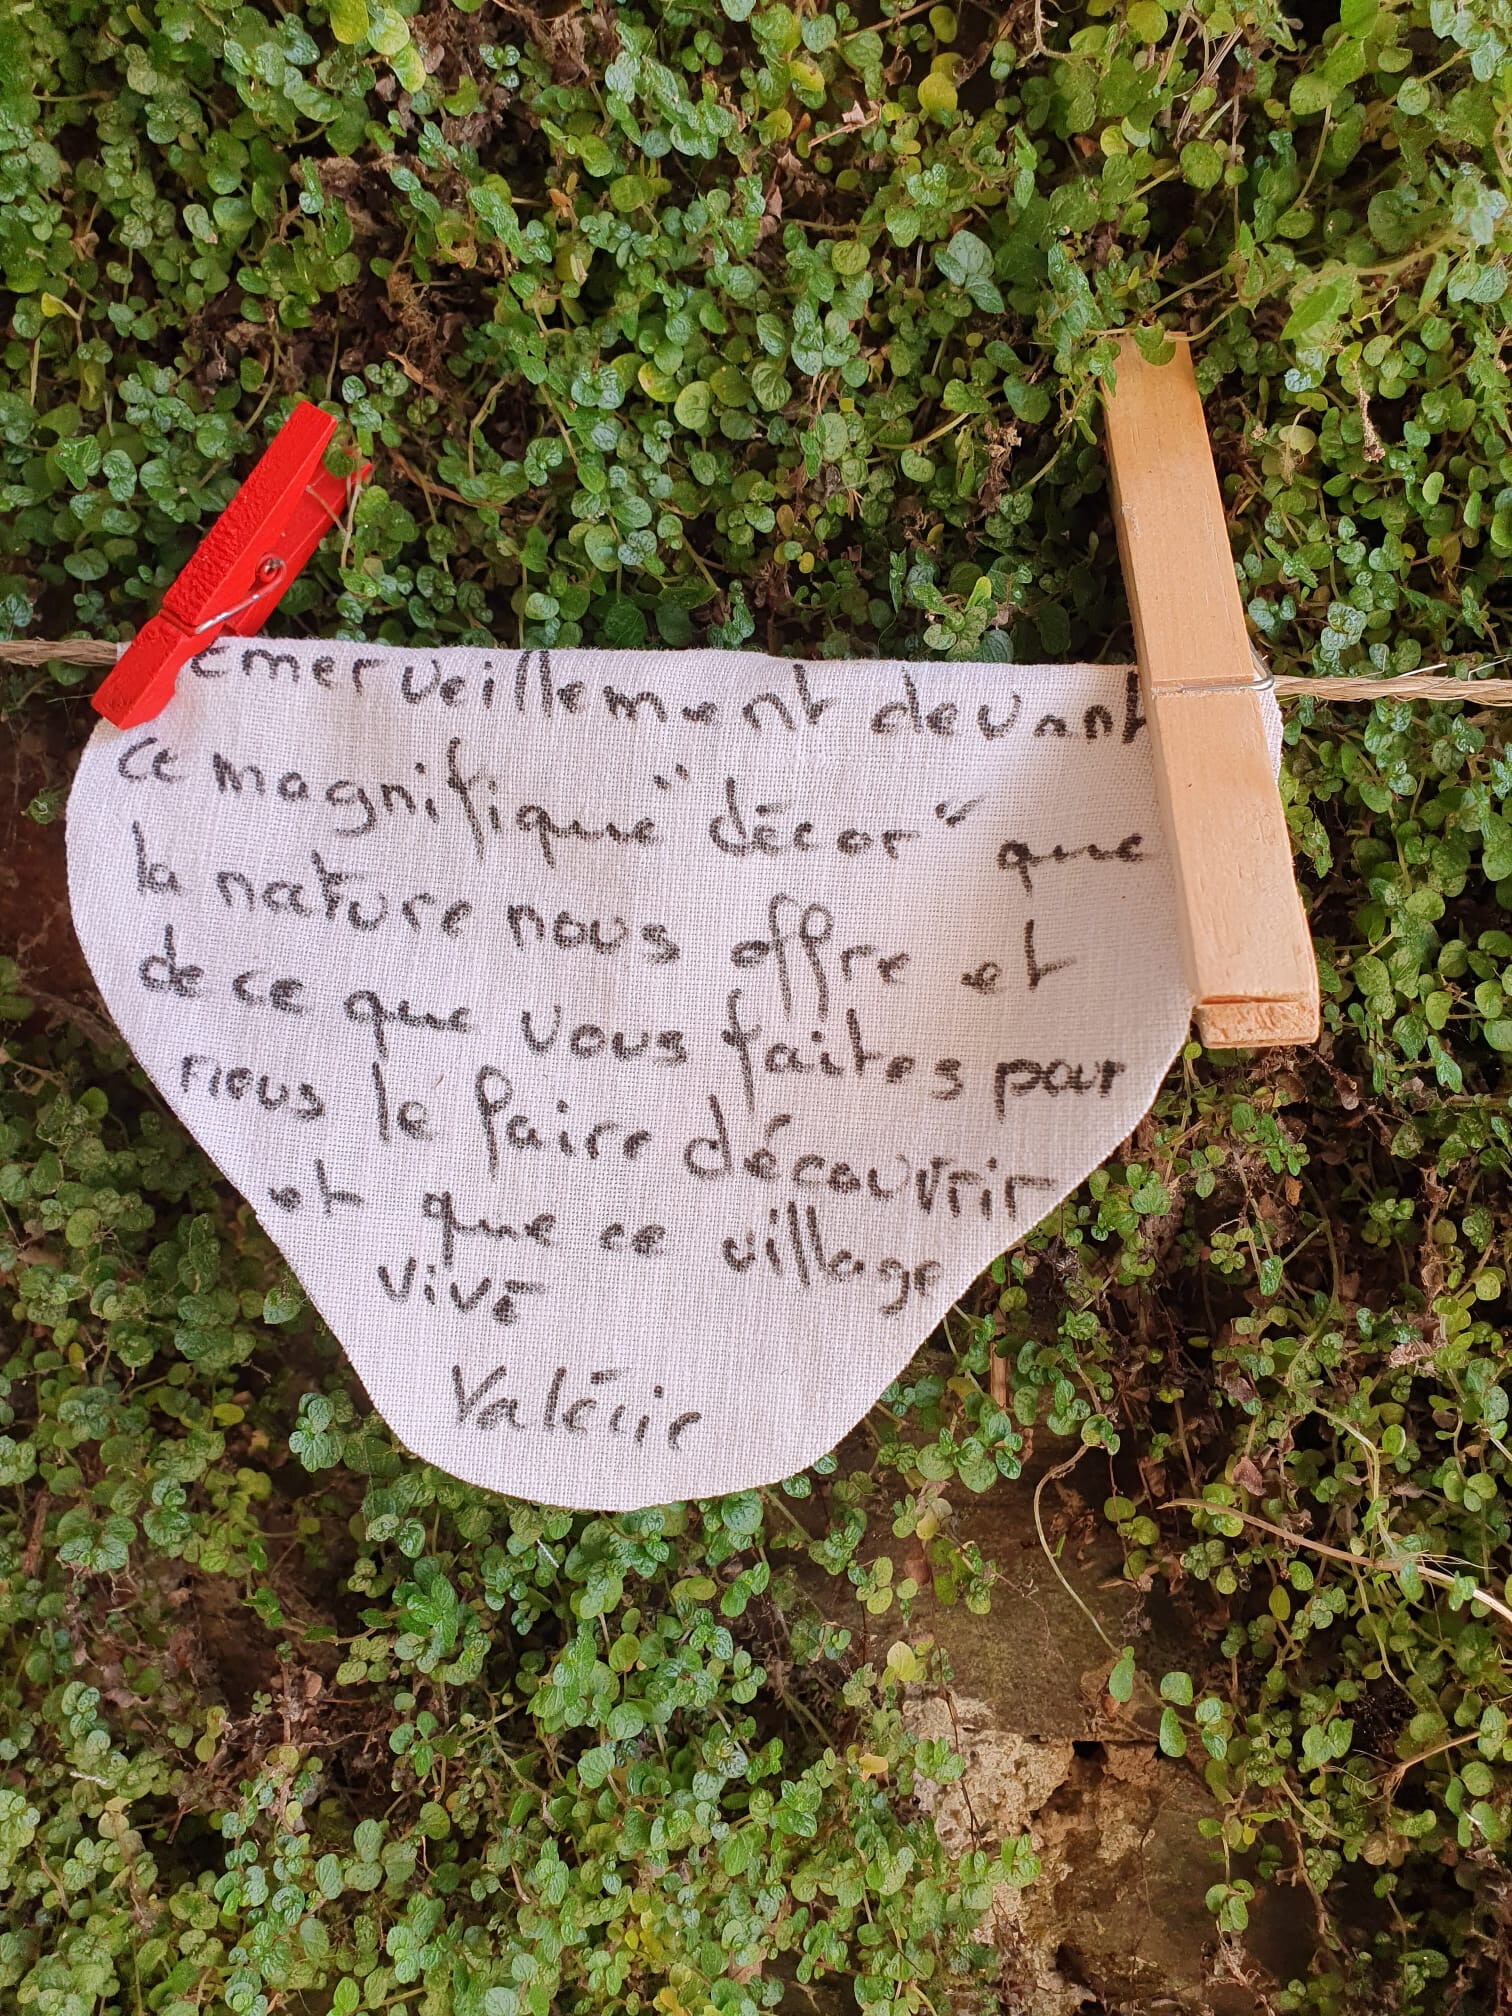 Emerveillement devant
ce magnifique "décor" que
la nature nous offre et
de ce que vous faites pour
nous le faire découvrir
et que ce village
vive
Valérie